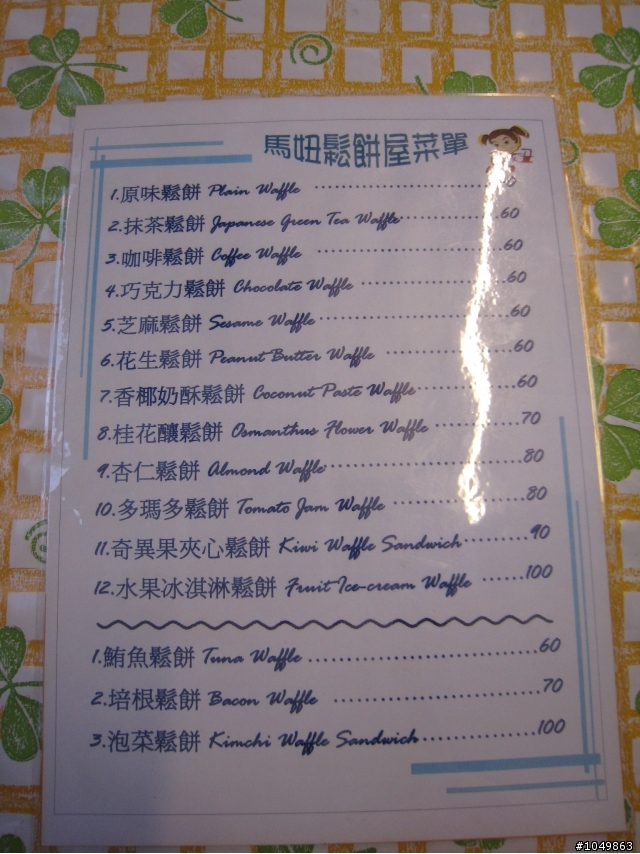 馬妞鬆餅屋菜單
1.原味鬆餅 Plain Waffle
2.抹茶鬆餅 Japanese Green Tea Waffle 60
3.咖啡鬆餅 Coffee Waffle 60
4.巧克力鬆餅 Chocolate Waffle 60
5.芝麻鬆餅 Sesame Waffle 60
6.花生鬆餅 Peanut Butter Waffle 60
7.香椰奶酥鬆餅 Coconut Paste Waffle 60
8.桂花釀鬆餅 Osmanthus Flower Waffle 70
9.杏仁鬆餅 Almond Waffle 80
10.多瑪多鬆餅 Tomato Jam Waffle 80
11.奇異果夾心鬆餅 Kiwi Waffle Sandwich 90
12.水果冰淇淋鬆餅 Fruit Ice-cream Waffle 100
1.鮪魚鬆餅 Tuna Waffle 60
2.培根鬆餅 Bacon Waffle 70
3.泡菜鬆餅 Kimchi Waffle Sandwich 100
#1049863